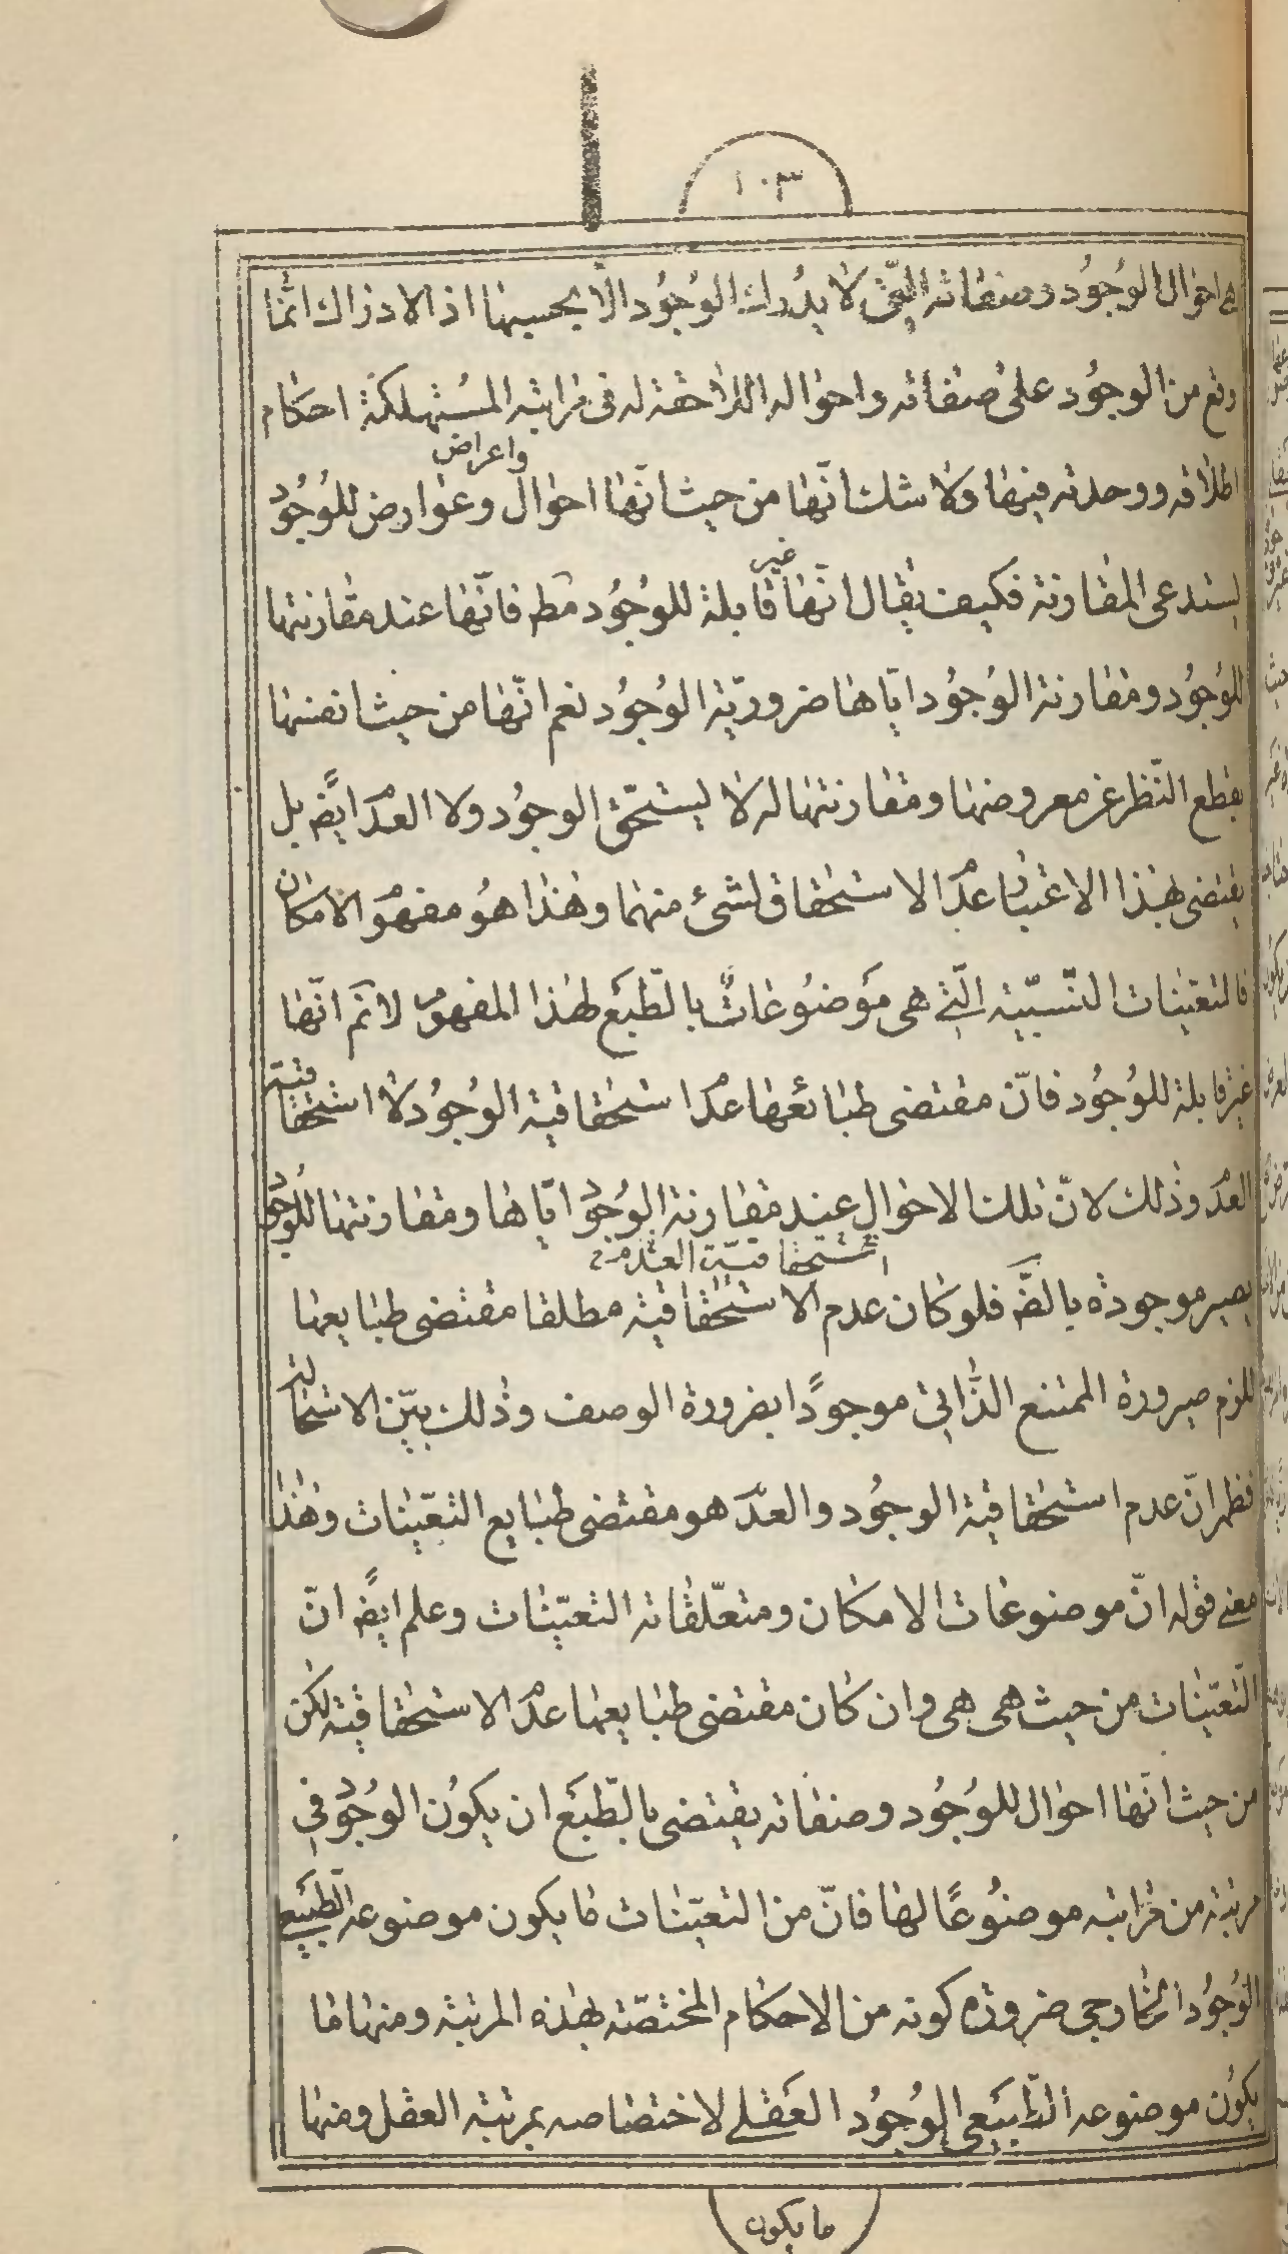 ١٠٣
هى احوال الوجود وصفاته الّتى لا يدرك الوجود الّا بحسبها اذ الادراك انّما
وقع من الوجود على صفاته واحواله اللاحقة له فى مراتبه المستهلكة احكام
واعراض
اطلاقه ووحدته فيها ولا شك انّها من حيث انّها احوال وعوارض للوجود
غير
يستدعى المقارنة فكيف يقال انّها قابلة للوجود مط فانّها عند مقارنتها
للوجود ومقارنة الوجود ايّاها ضروريّة الوجود نعم انّها من حيث انفسها
بقطع النّظر عن معروضها ومقارنتها له لا يستحقّ الوجود ولا العدم ايضً بل
يقتضى بهذا الاعتبار عدم الاستحقاق لشئ منهما وهذا هو مفهوم الامكان
فالتعيّنات النّسبيّة الّتى هى موضوعاتٌ بالطّبع لهذا المفهوم لا نم انّها
غير قابلة للوجود فانّ مقتضى طبائعها عدم استحقاقية الوجود لا استحقاقيّة
العدم وذلك لانّ تلك الاحوال عند مقارنة الوجود ايّاها ومقارنتها للوجود
استحقاقيّة العدم
يصير موجودة بالضّ فلو كان عدم الاستحقاقية مطلقا مقتضى طبايعها
للزم صيرورة الممتنع الذّاتى موجودًا بضرورة الوصف وذلك بيّن الاستحالة
فظهر انّ عدم استحقاقية الوجود والعدم هو مقتضى طبايع التعيّنات وهذا
معنى قوله انّ موضوعات الامكان ومتعلّقاته التعيّنات وعلم ايضً ان
التّعيّنات من حيث هى هى وان كان مقتضى طبايعها عدم الاستحقاقية لكن
من حيث انّها احوال للوجود وصفاته يقتضى بالطّبع ان يكون الوجود فى
مرتبة من مراتبه موضوعًا لها فانّ من التعيّنات ما يكون موضوعه الطّبيعى
الوجود الخارجى ضرورة كونه من الاحكام المختصّة بهذه المرتبة ومنها ما
يكون موضوعه الطّبيعى الوجود العقلى لاختصاصه بمرتبة العقل ومنها
ما يكون